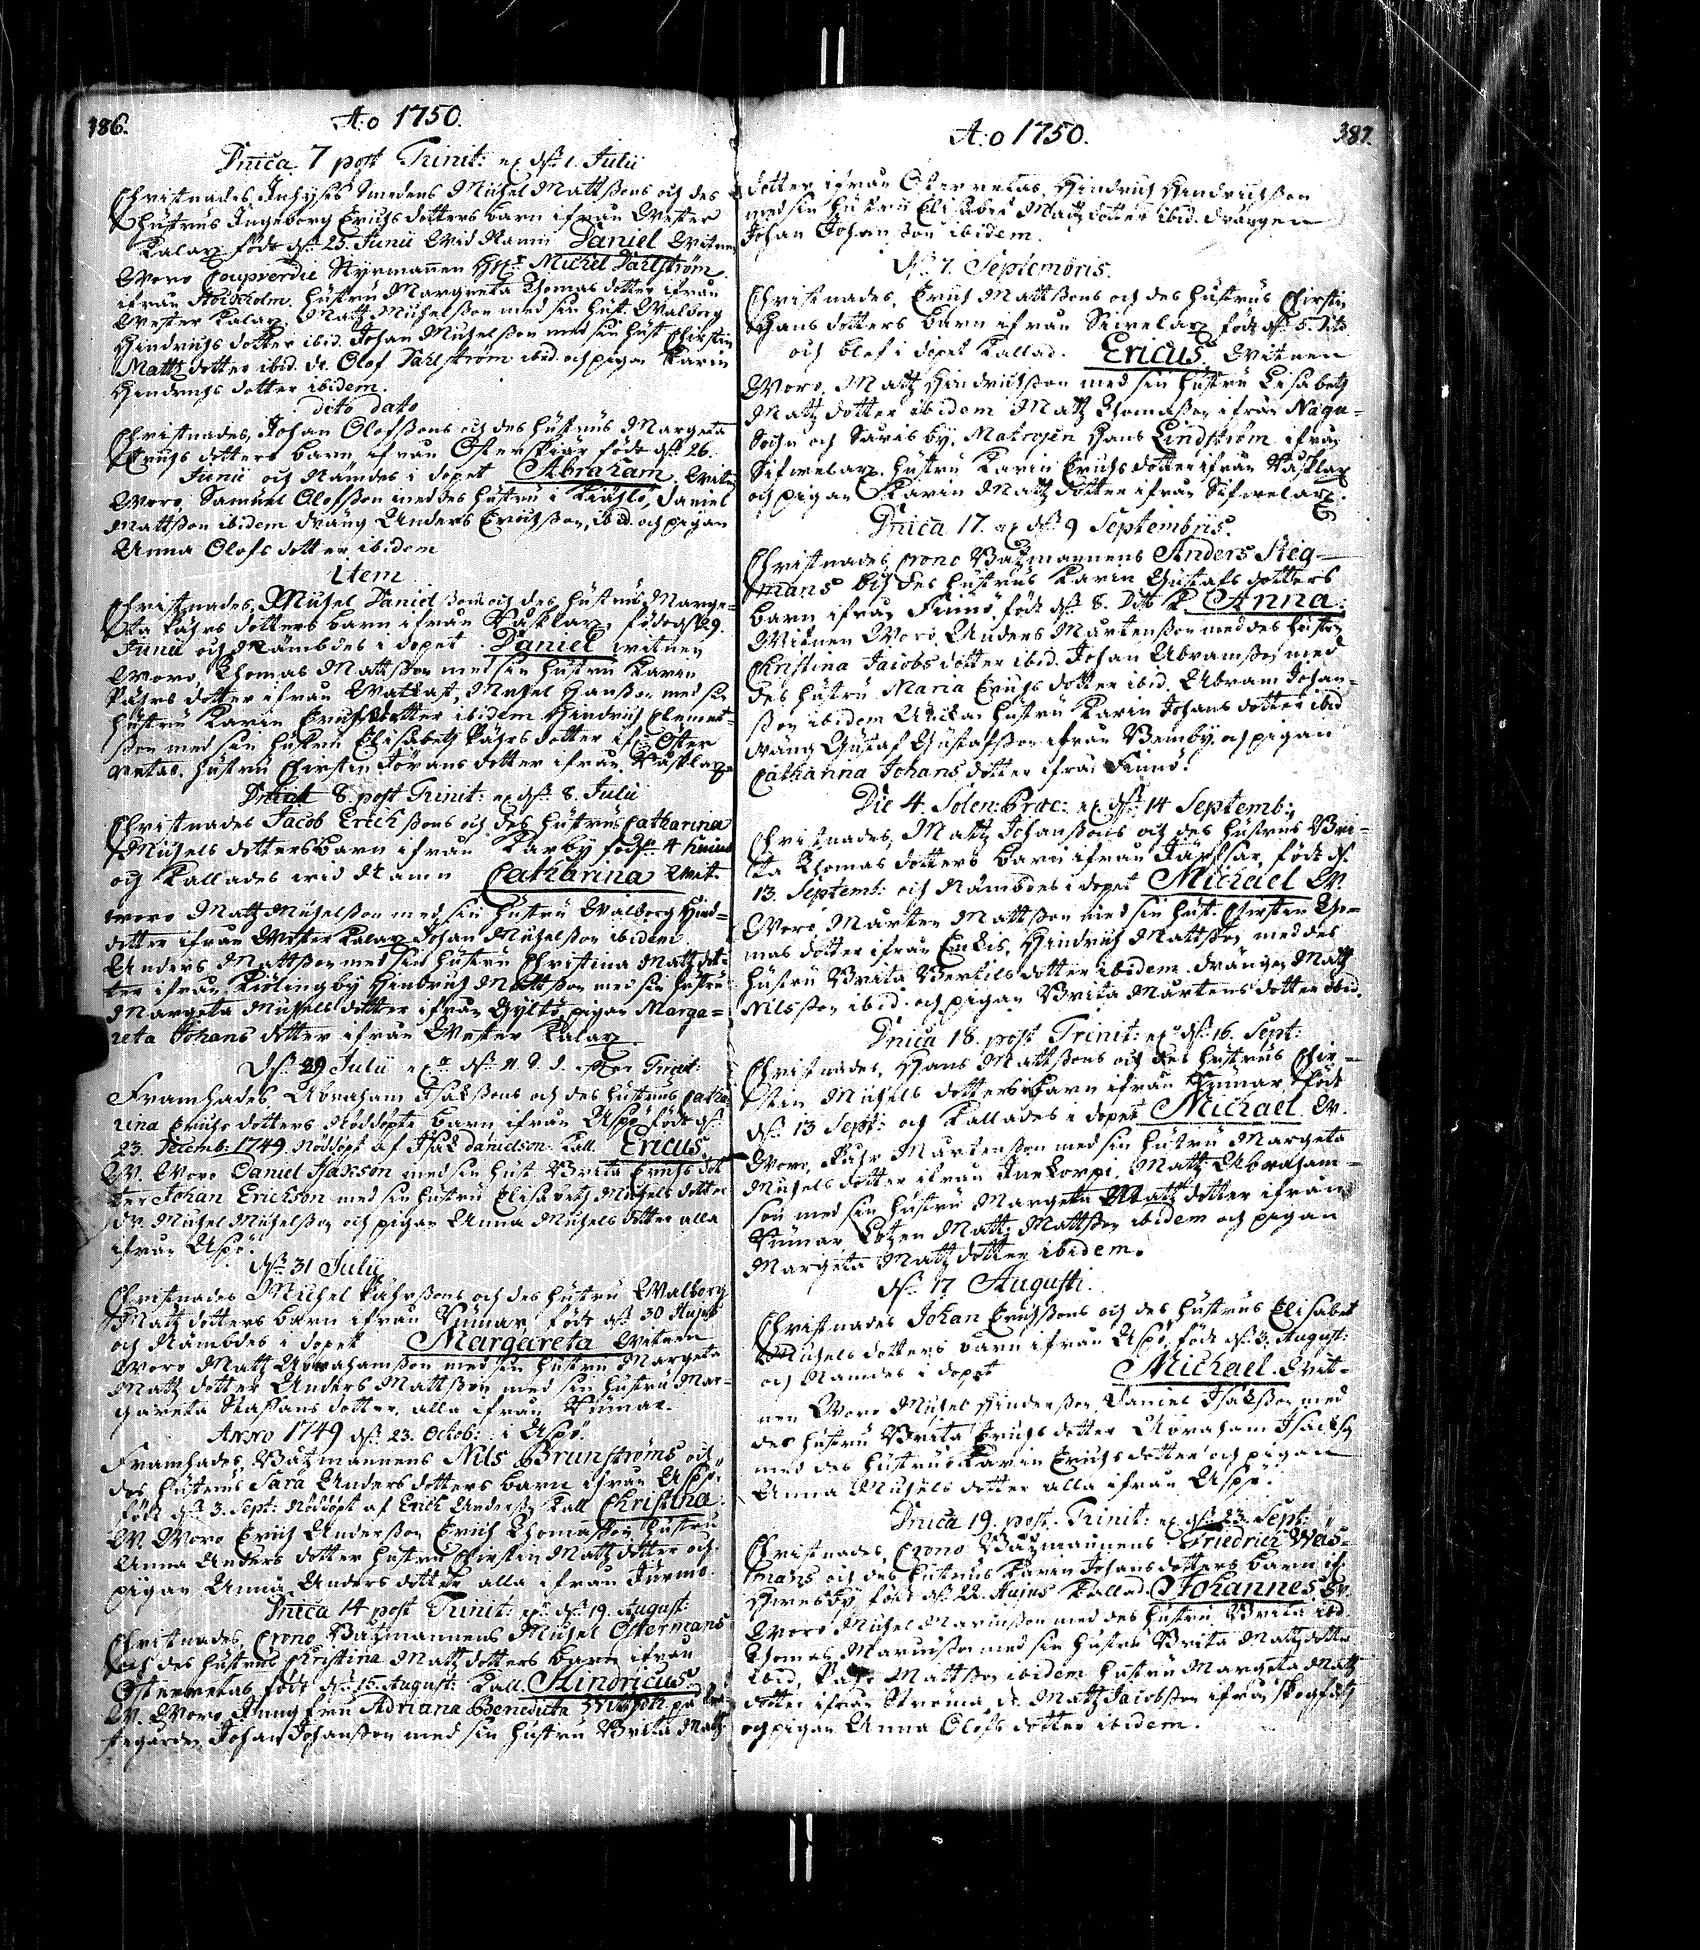 386.
A:o 1750.
Dnica 7 post Trinit: d: 1. Julii
Christnades, Inhyses Smedens Michel Mattssons och des
hustrus Ingeborg Erichsdotters barn ifrån Wester
Kalax född d: 25. Junii wid Namn Daniel Witnen
Woro Coupverdie Styrmannen H: Michel Dahlström
ifrån Stockholm, hustru Margreta Thomas dotter ifrån
Wester Kalax Matz Michelsson med sin hust. Walborg
Hindrichs dotter ibid. Johan Michelsson med sin hust Chirstin
Matz dotter ibid. dr. Olof Dahlström ibid. och pigan Karin
Hindrichs dotter ibidem.
dito dato
Christnades, Johan Olofssons och des hustrus Margeta
Erichs dotters barn ifrån Österskiär född d: 26.
Junii och Nämdes i dopet Abraham Witn
Woro, Samuel Olofsson med des hustru i Daniel
Mattsson ibidem dräng Anders Erichsson, ibid. och pigan
Anna Olofs dotter ibidem
Item
Christnades, Michel Danielssons och des hustrus Marge-
ta Påhrs dotters barn ifrån född d: 29.
Junii och Nämbdes i dopet Daniel witnen
Woro, Thomas Mattsson med sin hustru Karin
Påhrs dotter ifrån Michel Hansson med sin
hustru Karin Erichsdotter ibidem Hindrich Clemet-
sson med sin hustru Elisabeth Påhrs dotter ifr. Öster
retas. hustru Chirstin Jörans dotter ifrån
Dnica 8. post Trinit: d: 8. Julii
Christnades Jacob Erichssons och des hustrus Catharina
Michels dotters barn ifrån Karby född 4 huius
och Kallades wid Namn Catharina Wit-
woro Matz Michelsson med sin hustru Walborg Hind-
dotter ifrån Wester Kalax Johan Michelsson ibidem
Anders Mattsson med sin hustru Christina Matz dot-
ter ifrån Kirlingby Hindrich Mattsson med sin hustru
Margeta Michels dotter ifrån Gyltö, pigan Marga-
reta Johans dotter ifrån Wester Kalax
D: 29 Julii d: 9. Trinit:
Framhades Abraham Isakssons och des hustrus Catha
rina Erichs dotters Nöddöpte barn ifrån Aspö född d:
23. Decemb: 1749. Nöddöpt af Isak Danielson Kall. Ericus.
W. Woro Daniel Isakson med sin hust Brita Erichs dot
ter Johan Erichson med sin hustru Elisabeth Michels dotter
dr. Michel Michelsson och pigan Anna Michels dotter alla
ifrån Aspö.
d: 31 Julii
Christnades Michel Påhrssons och des hustru Walborg
Matz dotters barn ifrån född d: 30 Hujus
och Nämbdes i dopet Margareta Witnen
Woro Matz Abrahamsson med sin hustru Margeta
Matz dotter Anders Mattsson med sin hustru Mar-
gareta Staffans dotter, alla ifrån
Anno 1749 d: 23. Octob: i Aspö.
Framhades, Båtzmannens Nils Brunströms och
des hustrus Sara Anders dotters barn ifrån Aspö.
född d: 3. Sept: Nöddöpt af Erich Anderss: Kall Christina.
W. Woro Erich Andersson Erich Thomasson hustru
Anna Anders dotter hustru Chirstin Matz dotter och
pigan Anna Anders dotter alla ifrån Jurmo.
Dnica 14 post Trinit: d: 19. August:
Christnades, Crono Båtzmannens Michel Östermans
och des hustrus Christina Matz dotters barn ifrån
Österretas född d: 15. August: Kall. Hindricus.
W. Woro Jungfru Adriana Beneduta på
Johan Johansson med sin hustru Brita Matz
A:o 1750.
387.
dotter ifrån Österretas, Hindrich Hindrichsson
med sin hustru Elisabet Matz dotter ibid. drängen
Johan Johansson ibidem.
d: 7. Septembris.
Christnades, Erich Mattssons och des hustrus Chirstin
Hans dotters barn ifrån Siwelax född d: 5. dito
och blef i dopet Kallad. Ericus. Witnen
Woro, Matz Hindrichsson med sin hustru Lisabeth
Matz dotter ibidem Matz Thomasson ifrån Nagu-
Sochn och Saris by, Matrosen Hans Lindström ifrån
Sifwelax, hustru Karin Erichs dotter ifrån
och pigan Karin Matz dotter ifrån Sifwelax.
Dnica 17. d: 9 Septembris.
Christnades, Crono Båtzmannens Anders Stig-
mans och des hustrus Karin Gustafs dotters
barn ifrån Finnö, född d: 8. dito K. Anna.
Witnen Woro, Anders Mårtensson med des hustru
Christina Jacobs dotter ibid. Johan Abramsson med
des hustru Maria Erichs dotter ibid. Abram Johan-
sson ibidem hustru Karin Johans dotter ibid
dräng Gustaf Gustafsson ifrån Bemby. och pigan
Catharina Johans dotter ifrån Finnö.
Die 4. Solen: Prec: d: 14 Septemb:
Christnades, Matz Johanssons och des hustrus Bri-
ta Thomas dotters barn ifrån född d.
13. Septemb: och Nämbdes i dopet Michael W.
Woro, Mårten Mattsson med sin hust. Chirstin Tho-
mas dotter ifrån Enkis, Hindrich Mattsson med des
hustru Brita Bertils dotter ibidem. drängen Matz
Nilsson ibid. och pigan Brita Mårtens dotter ibid.
Dnica 18. post Trinit: d: 16. Sept:
Christnades, Hans Mattssons och des hustrus Chir-
stin Michels dotters barn ifrån född
d: 13 Sept: och Kallades i dopet Michael. W.
Woro, Påhr Mårtensson med sin hustru Margeta
Michels dotter ifrån Matz Abraham-
son med sin hustru Margeta Matz dotter ifrån
Matz Mattsson ibidem och pigan
Margeta Matz dotter ibidem.
d: 17 Augusti.
Christnades Johan Erichssons och des hustrus Elisabet
Michels dotters barn ifrån Aspö, född d: 3. August:
och Nämdes i dopet Michael. Wit-
nen Woro Michel Hindersson, Daniel Isaksson med
des hustru Brita Erichs dotter Abraham Isacksson
med des hustru Karin Erichs dotter och pigan
Anna Michels dotter alla ifrån Aspö.
Dnica 19. post. Trinit: d: 23. Sept:
Christnades, Crono Båtzmannens Friedrich Was-
mans och des hustrus Karin Johans dotters barn if.
Hwesby född d: 22. Hujus Kallad Johannes. W.
Woro Michel med des hustru Brita ibid.
Thomas med sin hustru Brita Matz dotter
ibid, Påhr Mattsson ibidem hustru Margeta Matz
dotter ifrån Ströma dr. Matz Jacobsson ifrån
och pigan Anna Olofs dotter ibidem.